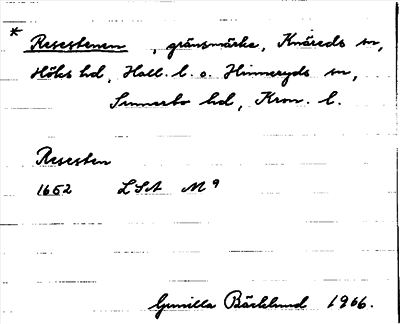 * Resestenen , gränsmärke, Knäreds sn,
Höks hd, Hall. l. o. Hinneryds sn,
Sunnerbo hd, Kron. l.
Resesten
1652 LSA M 9
Gunilla Bäcklund 1966.